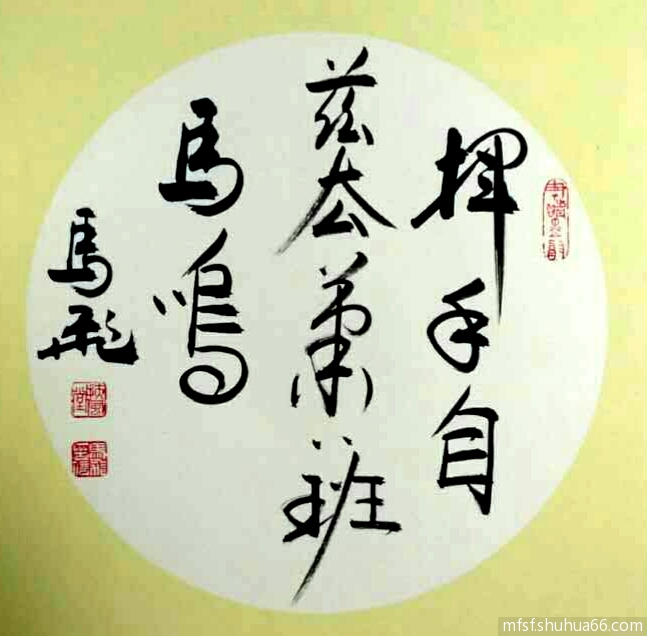 揮手自
茲去蕭〻班
馬鳴
馬飛
mfsfshuhua66.com